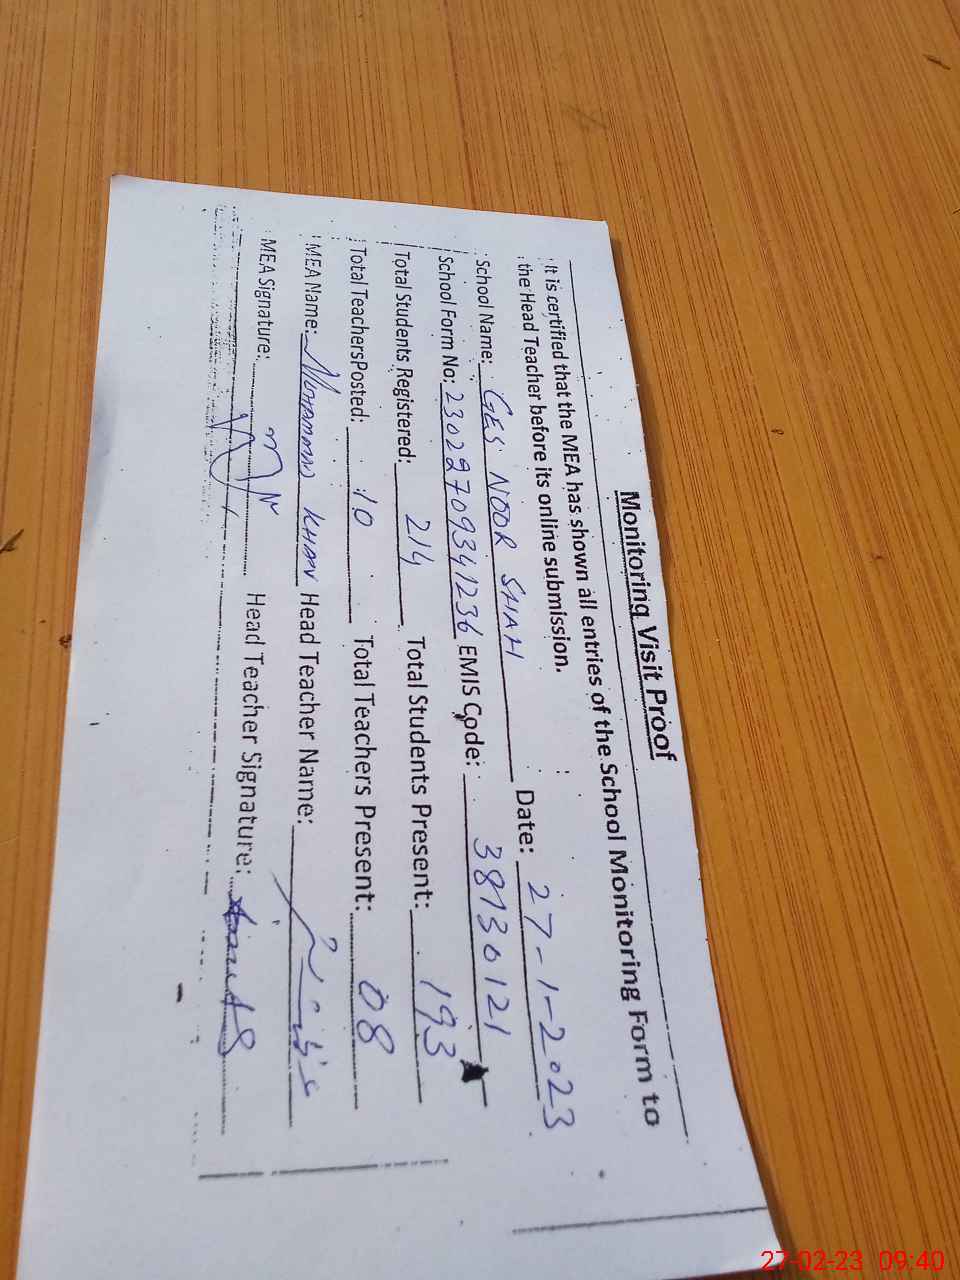 Monitoring Visit Proof
It is certified that the MEA has shown all entries of the School Monitoring Form to
the Head Teacher before its online submission.
School Name: GES NOOR SHAH Date: 27-1-2023
School Form No: 23029709341236 EMIS Code: 38130121
Total Students Registered: 214 Total Students Present: 193
Total TeachersPosted: 10 Total Teachers Present: 08
MEA Name: MUHAMMAD KHAN Head Teacher Name:
MEA Signature: Head Teacher Signature:
27-02-23 09:40